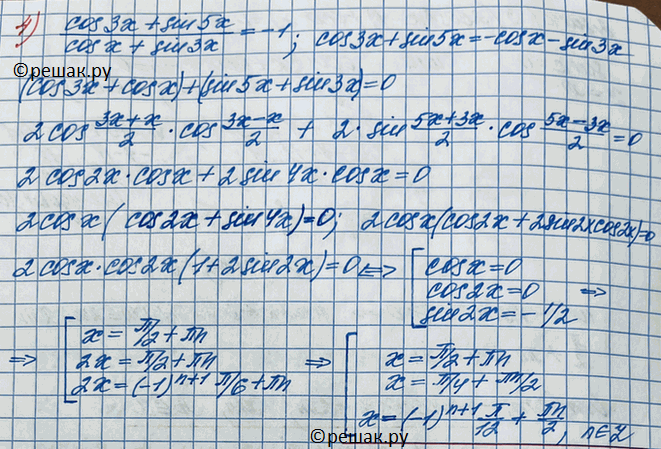 4) (cos3x + sin5x)/(cosx + sin3x) = -1; cos3x + sin5x = -cosx - sin3x
©решак.ру
(cos3x + cosx) + (sin5x + sin3x) = 0
2cos (3x+x)/2 · cos (3x-x)/2 + 2·sin (5x+3x)/2 · cos (5x-3x)/2 = 0
2cos2x·cosx + 2sin4x·cosx = 0
2cosx(cos2x + sin4x) = 0; 2cosx(cos2x + 2sin2xcos2x) = 0
2cosx·cos2x(1 + 2sin2x) = 0 <=> [ cosx = 0
cos2x = 0 =>
sin2x = -1/2
=> [ x = π/2 + πn
2x = π/2 + πn
2x = (-1)^(n+1) π/6 + πn
=> [ x = π/2 + πn
x = π/4 + πn/2
x = (-1)^(n+1) π/12 + πn/2, n∈Z
©решак.ру